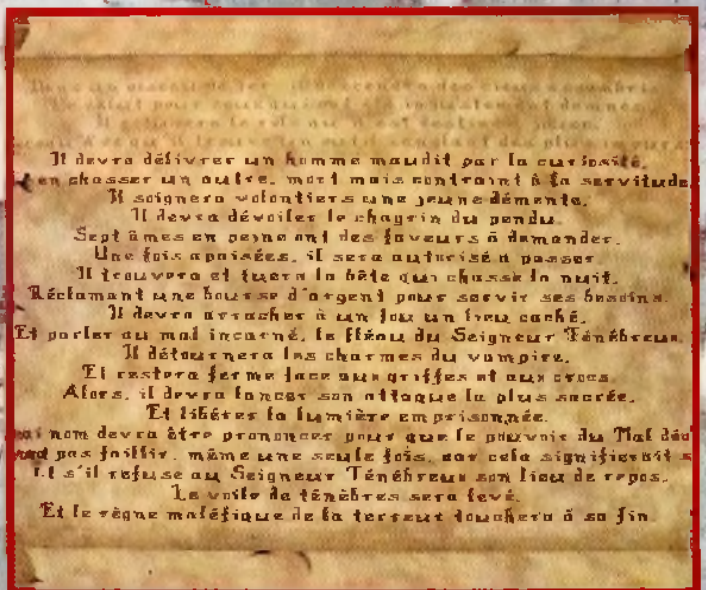 Il devra délivrer un homme maudit par la curiosité,
en chasser un autre, mort mais contraint à la servitude
Il soignera volontiers une jeune démente,
Il devra dévoiler le chagrin du pendu.
Sept âmes en peine ont des faveurs à demander.
Une fois apaisées, il sera autorisé à passer
Il trouvera et tuera la bête qui chasse la nuit.
Réclamant une bourse d'argent pour servir ses besoins.
Il devra arracher à un fou un lieu caché.
Et parler au mal incarné, le fléau du Seigneur Ténébreux.
Il détournera les charmes du vampire.
Et restera ferme face aux griffes et aux crocs.
Alors, il devra lancer son attaque la plus sacrée.
Et libérer la lumière emprisonnée.
nom devra être prononcer pour que le pouvoir du Mal
pas faillir, même une seule fois, car cela signifierait
s'il refuse au Seigneur Ténébreux son lieu de repos.
Le voile de ténèbres sera levé.
Et le règne maléfique de la terreur touchera à sa fin